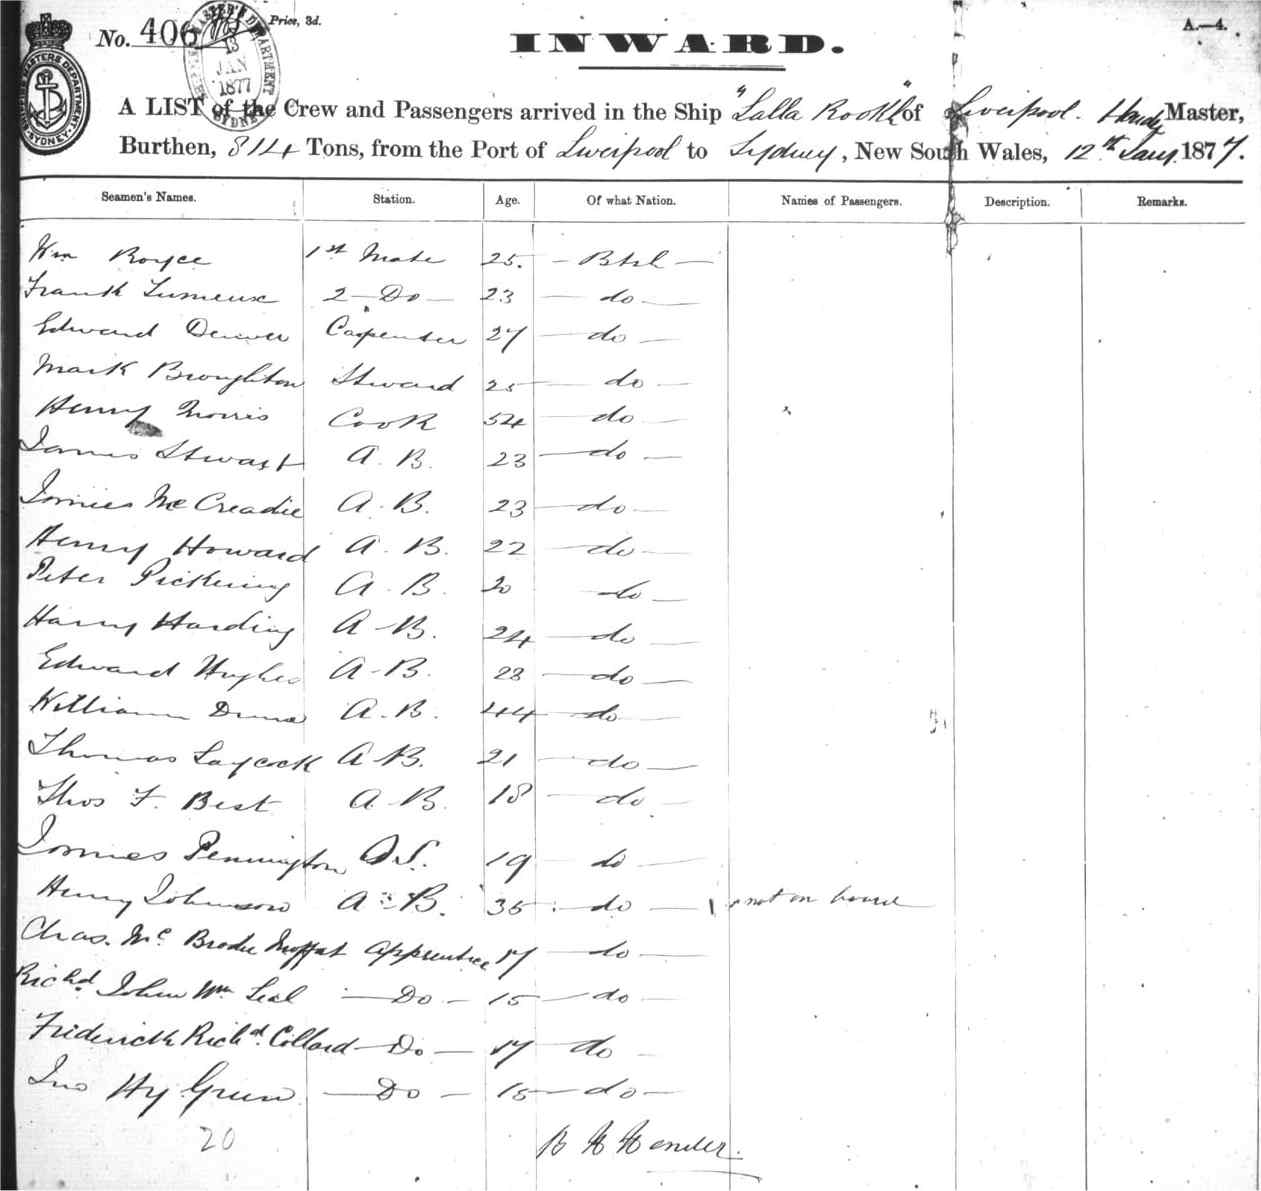 No. 406 Price, 3d. A.—4.
SHIPPING MASTER'S DEPARTMENT 13 JAN 1877 SYDNEY
INWARD.
A LIST of the Crew and Passengers arrived in the Ship "Lalla Rookh" of Liverpool. Master,
Burthen, 814 Tons, from the Port of Liverpool to Sydney, New South Wales, 12th Jany. 1877.
Seamen's Names. Station. Age. Of what Nation. Names of Passengers. Description. Remarks.
Wm Royce 1st Mate 25. — Btsh —
Frank 2 — Do — 23 — do —
Edward Denver Carpenter 27 — do —
Mark Broughton Steward 25 — do —
Henry Morris Cook 54 — do —
James Stewart A. B. 23 — do —
James McCreadie A. B. 23 — do —
Henry Howard A. B. 22 — do —
Peter Pickering A. B. 20 — do —
Harry Harding A. B. 24 — do —
Edward Hughes A. B. 23 — do —
William A. B. 44 — do —
Thomas Laycock A. B. 21 — do —
Thos F. Best A. B. 18 — do —
James Pennington O.S. 19 — do —
Henry Johnson A. B. 35 — do — not on board
Chas. Mc Brodie Moffat Apprentice 17 — do —
Richd John Wm Leal — Do — 15 — do —
Frederick Richd. Collard — Do — 17 do —
Jno Hy Green — Do — 15 — do —
20